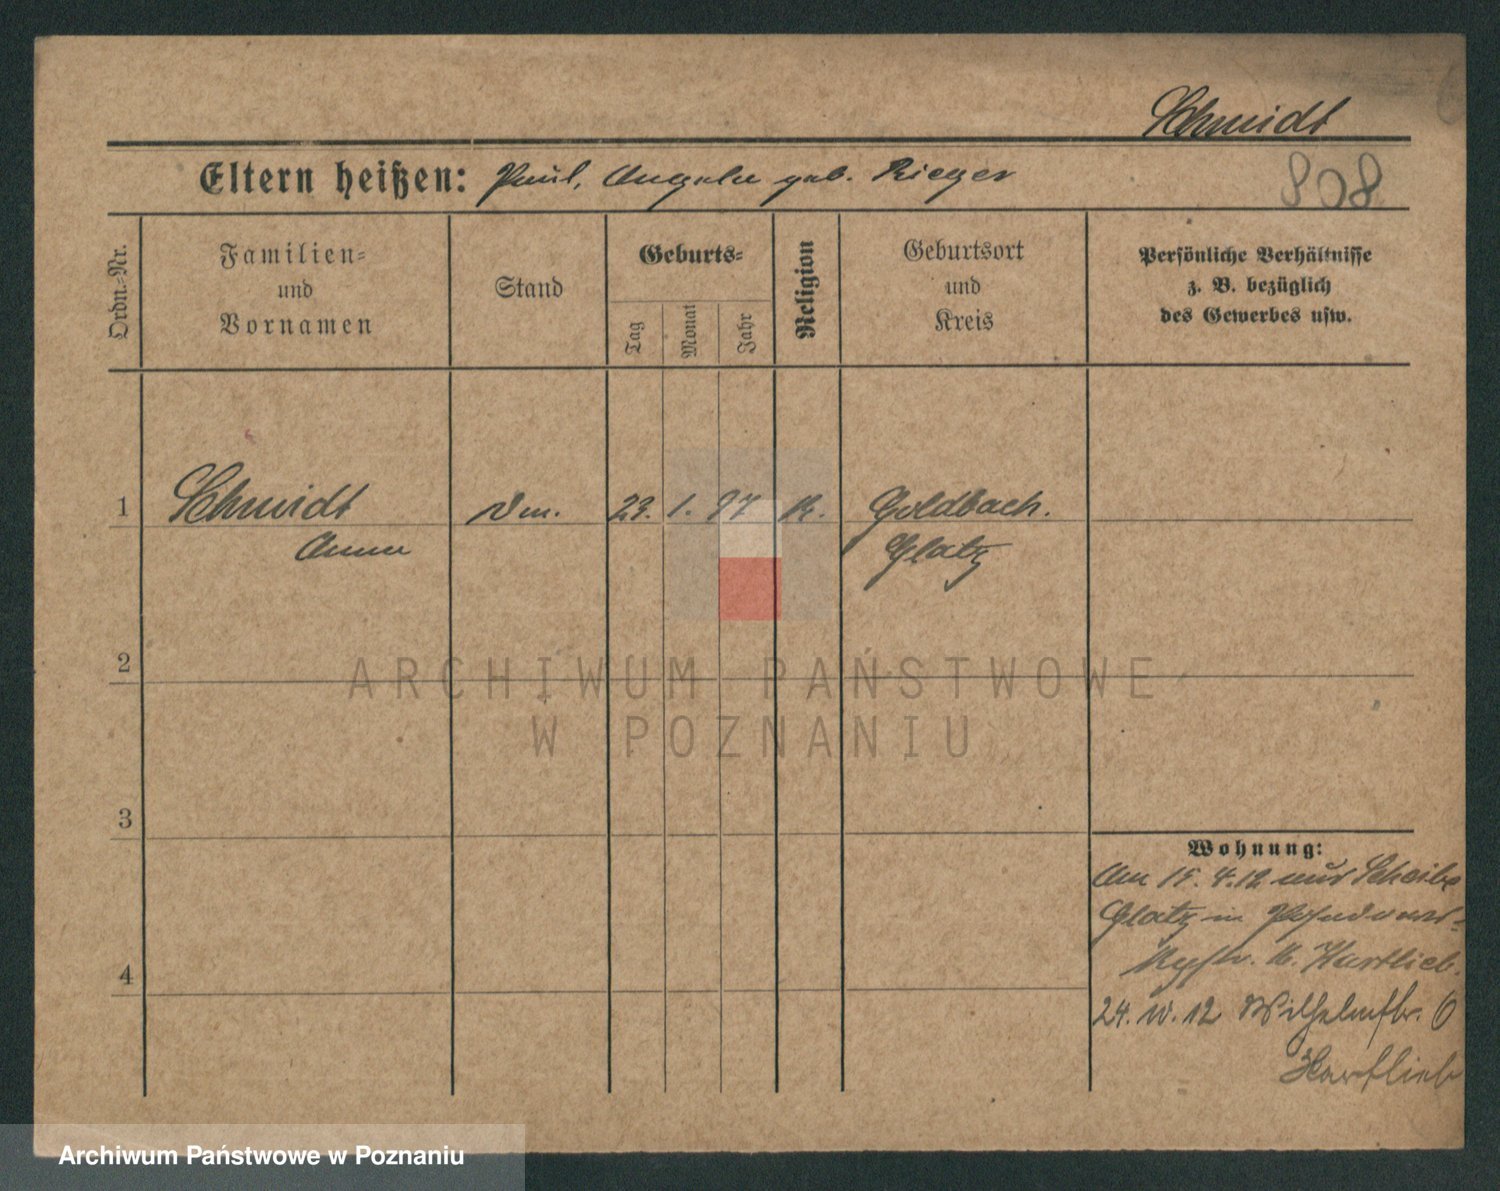 Schmidt
Eltern heißen: Paul, Angela geb. Rieger
808
Ordn.-Nr.
Familien-
und
Vornamen
Stand
Geburts-
Tag
Monat
Jahr
Religion
Geburtsort
und
Kreis
Persönliche Verhältnisse
z. B. bezüglich
des Gewerbes usw.
1 Schmidt 23. 1. 97 K. Goldbach.
Anna Glatz
2
ARCHIWUM PAŃSTWOWE
W POZNANIU
3
4
Wohnung:
Am 15. 4. 12 aus Scheibe
Glatz in
b. Hartlieb.
24. 10. 12 Wilhelmstr. 6
Hartlieb
Archiwum Państwowe w Poznaniu